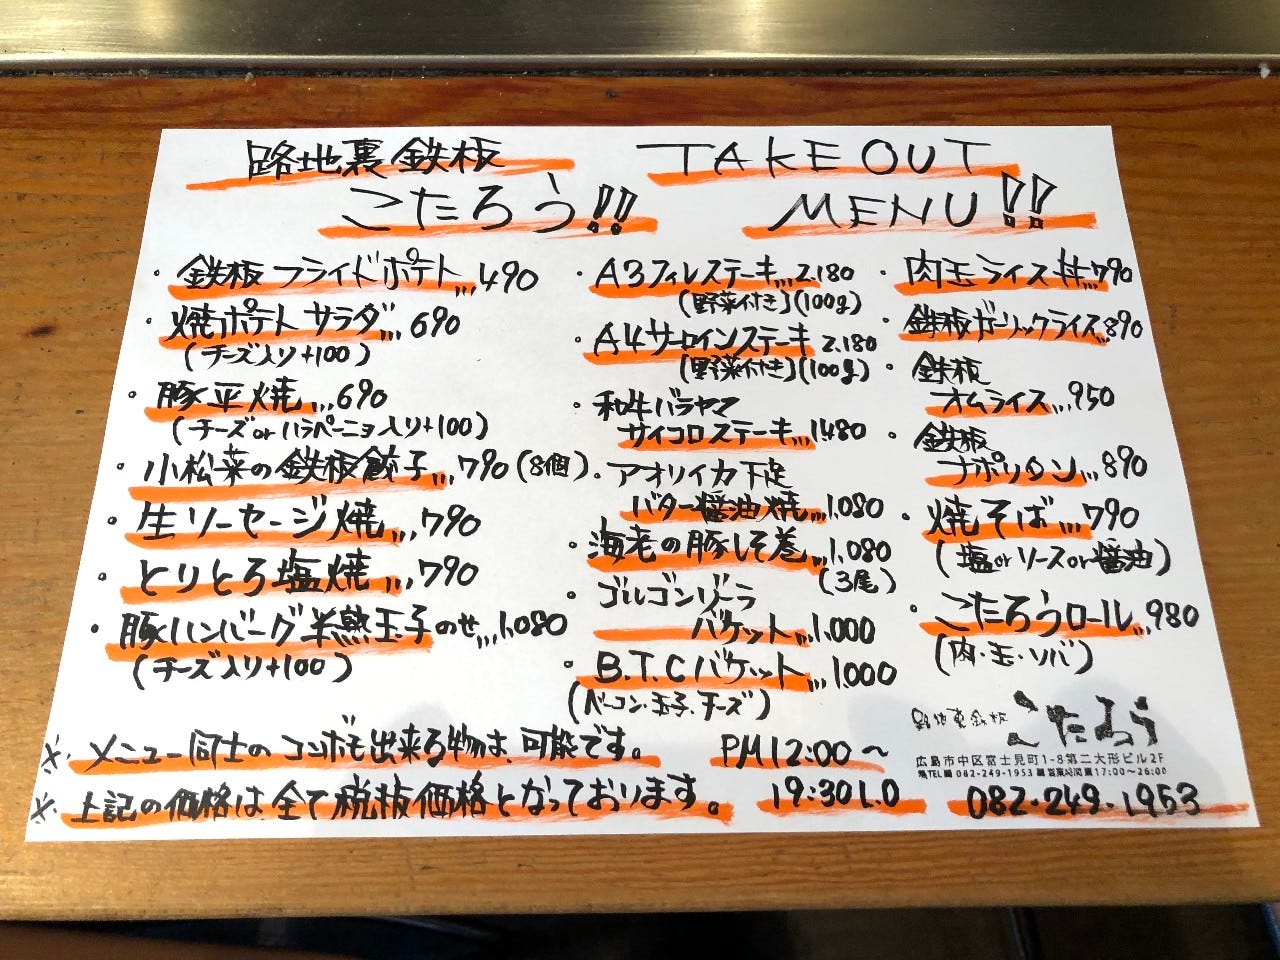 路地裏鉄板
こたろう!!
TAKE OUT
MENU!!
・鉄板フライドポテト,,,490
・焼ポテトサラダ,,,690
(チーズ入り+100)
・豚平焼,,,690
(チーズorハラペーニョ入り+100)
・小松菜の鉄板餃子,,,790(8個)
・生ソーセージ焼,,,790
・とりとろ塩焼,,,790
・豚ハンバーグ半熟玉子のせ,,,1.080
(チーズ入り+100)
・A3フィレステーキ,,,2.180
(野菜付き)(100g)
・A4サーロインステーキ 2.180
(野菜付き)(100g)
・和牛バラヤマ
サイコロステーキ,,,1.480
・アオリイカ下足
バター醤油焼,,,1.080
・海老の豚しそ巻,,,1.080
(3尾)
・ゴルゴンゾーラ
バケット,,,1.000
・B.T.Cバケット,,,1.000
(ベーコン.玉子.チーズ)
・肉玉ライス丼,,,790
・鉄板ガーリックライス,,,890
・鉄板
オムライス,,,950
・鉄板
ナポリタン,,,890
・焼そば,,,790
(塩orソースor醤油)
・こたろうロール,,,980
(肉・玉・ソバ)
路地裏鉄板 こたろう
広島市中区富士見町1-8第二大形ビル2F
TEL 082-249-1953 営業時間 17:00〜26:00
※メニュー同士のコンボも出来る物は、可能です。
PM12:00〜
※上記の価格は全て税抜価格となっております。
19:30L.O
082・249・1953